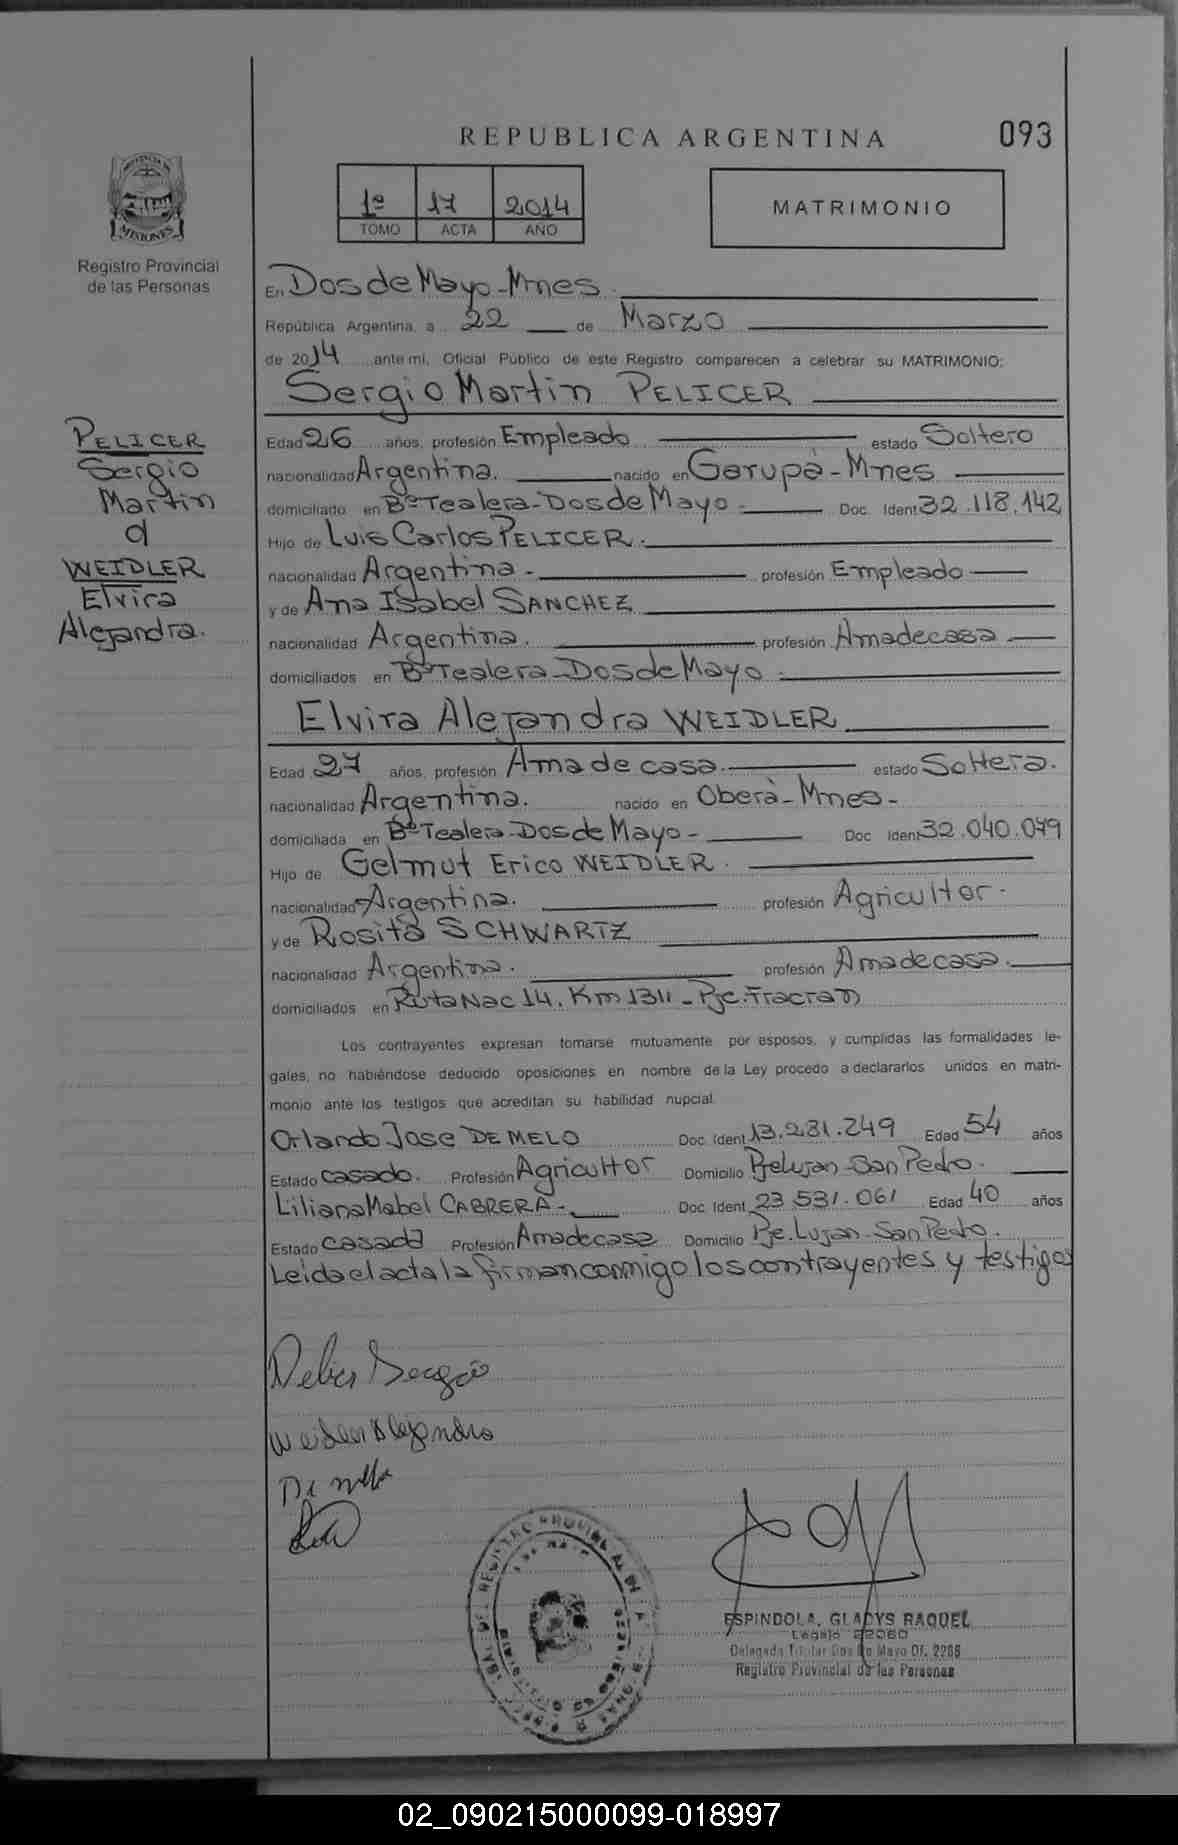 REPUBLICA ARGENTINA 093
PROVINCIA DE
MISIONES
Registro Provincial
de las Personas
1º 17 2014
TOMO ACTA AÑO
MATRIMONIO
PELICER
Sergio
Martin
WEIDLER
Elvira
Alejandra.
En Dos de Mayo - Mnes.
República Argentina, a 22 de Marzo
de 2014 ante mi, Oficial Público de este Registro comparecen a celebrar su MATRIMONIO:
Sergio Martin PELICER
Edad 26 años, profesión Empleado estado Soltero
nacionalidad Argentina. nacido en Garupà - Mnes
domiciliado en Bº Tealera - Dos de Mayo - Doc. Ident 32.118.142
Hijo de Luis Carlos PELICER.
nacionalidad Argentina - profesión Empleado
y de Ana Isabel SANCHEZ
nacionalidad Argentina. profesión Ama de casa
domiciliados en Bº Tealera - Dos de Mayo -
Elvira Alejandra WEIDLER
Edad 27 años, profesión Ama de casa. estado Soltera.
nacionalidad Argentina. nacido en Oberà - Mnes -
domiciliada en Bº Tealera - Dos de Mayo - Doc Ident 32.040.079
Hijo de Gelmut Erico WEIDLER.
nacionalidad Argentina. profesión Agricultor -
y de Rosita SCHWARTZ
nacionalidad Argentina. profesión Ama de casa.
domiciliados en Ruta Nac 14. Km 1311 - Pje. Fracran
Los contrayentes expresan tomarse mutuamente por esposos, y cumplidas las formalidades le-
gales, no habiéndose deducido oposiciones en nombre de la Ley procedo a declararlos unidos en matri-
monio ante los testigos que acreditan su habilidad nupcial.
Orlando Jose DE MELO Doc. Ident 13.231.249 Edad 54 años
Estado casado. Profesión Agricultor Domicilio Pje Lujan - San Pedro.
Liliana Mabel CABRERA - Doc. Ident. 23.531.061 Edad 40 años
Estado casada Profesión Ama de casa Domicilio Pje. Lujan - San Pedro.
Leida el acta la firman conmigo los contrayentes y testigos
Pelicer Sergio
Weidler Alejandra
De melo
ESPINDOLA, GLADYS RAQUEL
Legajo 22060
Delegada Titular Dos de Mayo Of. 2286
Registro Provincial de las Personas
02_090215000099-018997